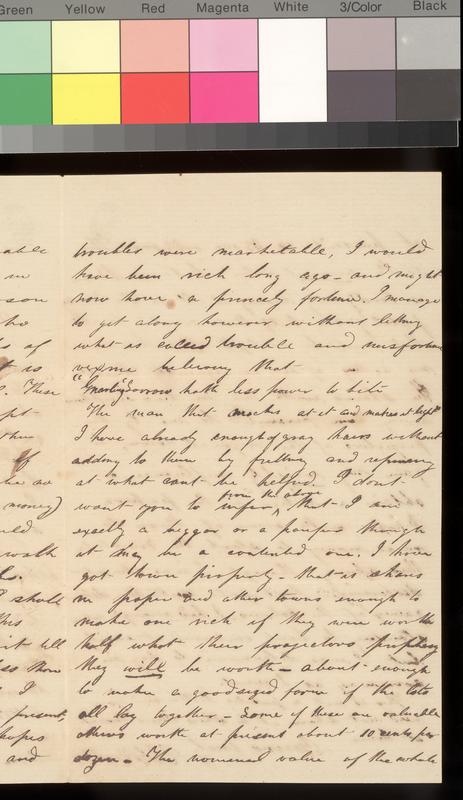 Green Yellow Red Magenta White 3/Color Black
troubles were marketable, I would
have been rich long ago - and might
now have a princely fortune. I manage
to get along however without letting
what is called trouble and misfortune
vex me believing that
"Gnarling Sorrow hath less power to bite
The man that mocks at it and makes it light"
I have already enough of gray hairs without
adding to them by fretting and repining
at what cant be helped. I don't
from the above
want you to infer, that I am
exactly a beggar or a pauper though
it may be a contented one. I have
got town property - that is shares
in paper and other towns enough to
make one rich if they were worth
half what their projectors prophesy
they will be worth - about enough
to make a good sized farm if the lots
all lay together - Some of these are valuable
others worth at present about 10 cents per
dozen - The nominal value of the whole
able
in
son
who
s of
t is
These
pt
then
If
he so
money)
uld
walk
ls.
I shall
This
it till
ss than
I
present,
hopes
and